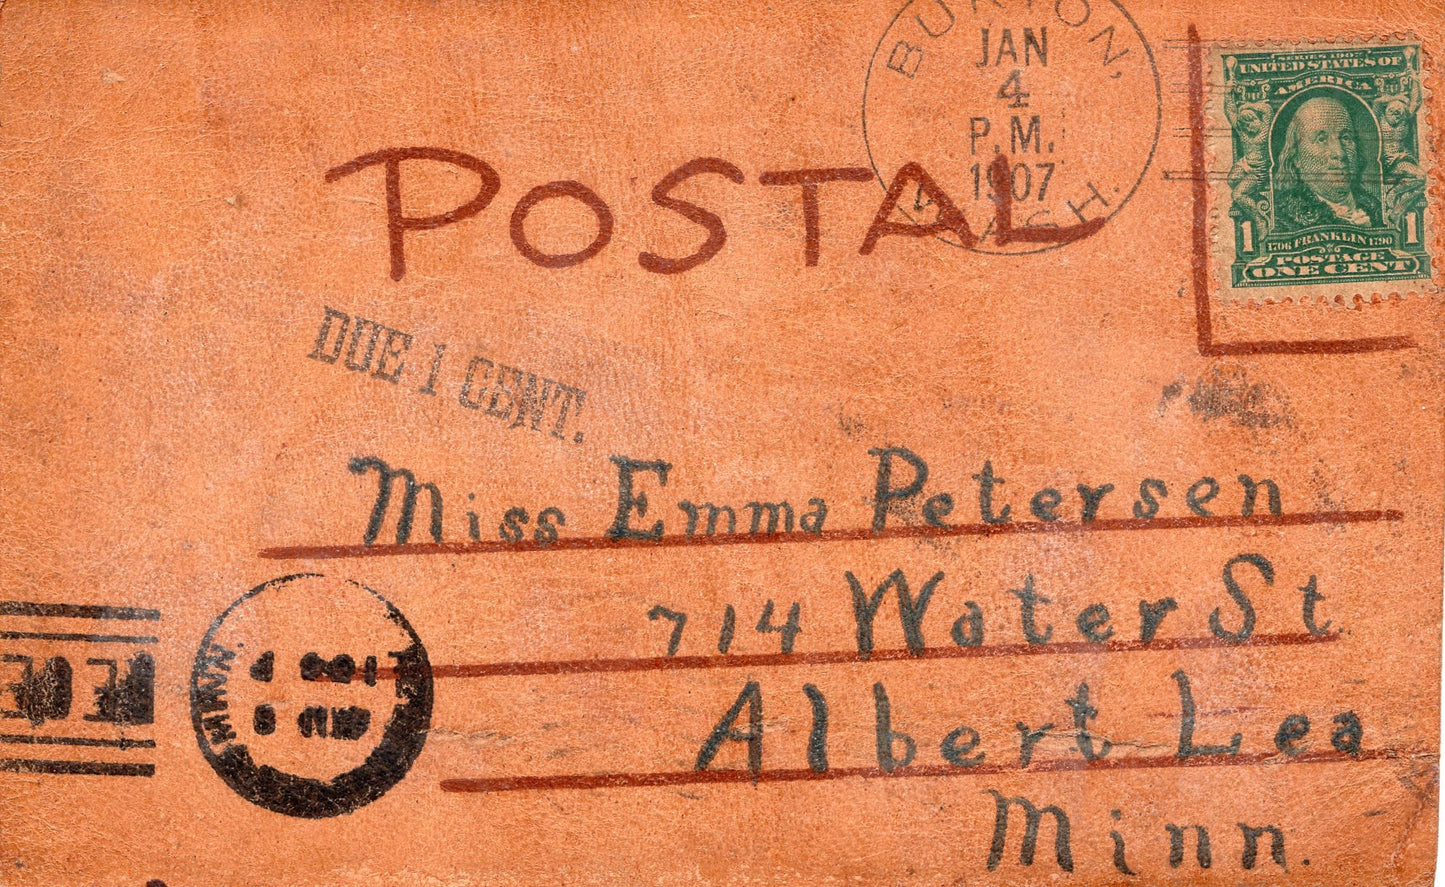 BURTON,
JAN
4
P.M.
1907
WASH.
SERIES 1902
UNITED STATES OF
AMERICA
1 1706 FRANKLIN 1790 1
POSTAGE
ONE CENT
POSTAL
DUE 1 CENT.
Miss Emma Petersen
714 Water St
Albert Lea
Minn.
MINN.